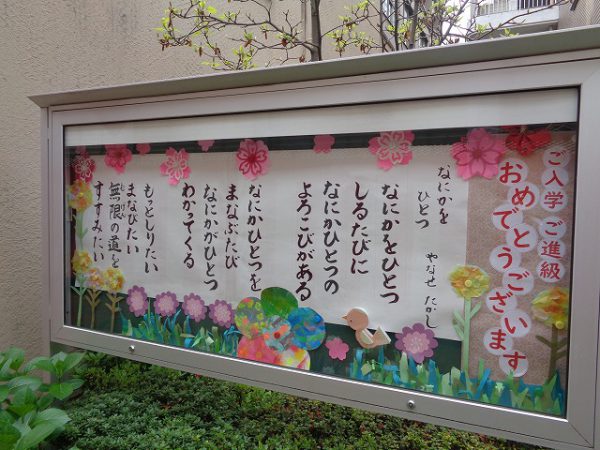 ご入学 ご進級
おめでとうございます
なにかを
ひとつ
やなせ たかし
なにかをひとつ
しるたびに
なにかひとつの
よろこびがある
なにかひとつを
まなぶたび
なにかがひとつ
わかってくる
もっとしりたい
まなびたい
無限の道を
すすみたい